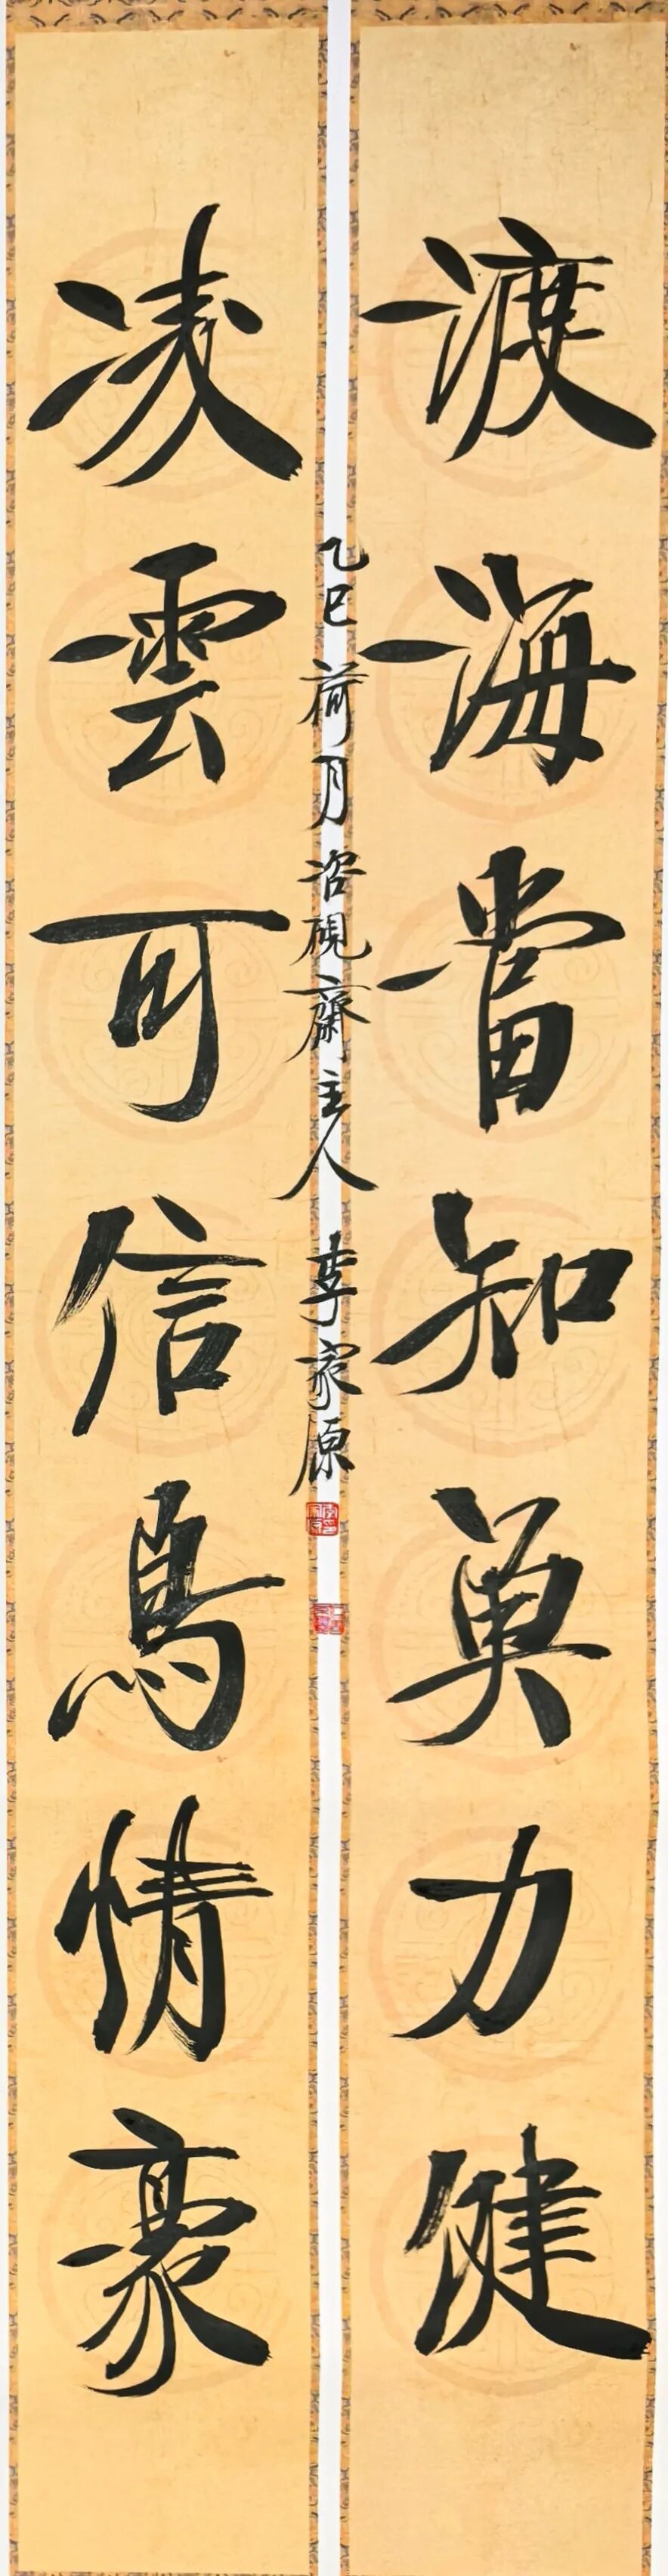 渡海當知魚力健
凌雲可信鳥情豪
乙巳荷月硯齋主人李家原